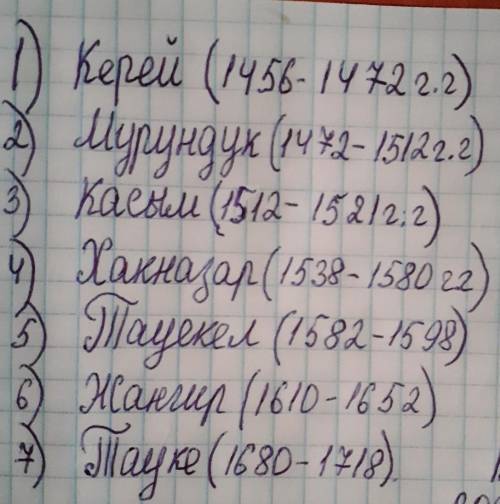 1) Керей (1456-1472 г.г)
2) Мурундук (1472-1512 г.г)
3) Касым (1512-1521 г.г)
4) Хакназар (1538-1580 гг)
5) Тауекел (1582-1598)
6) Жангир (1610-1652)
7) Тауке (1680-1718).